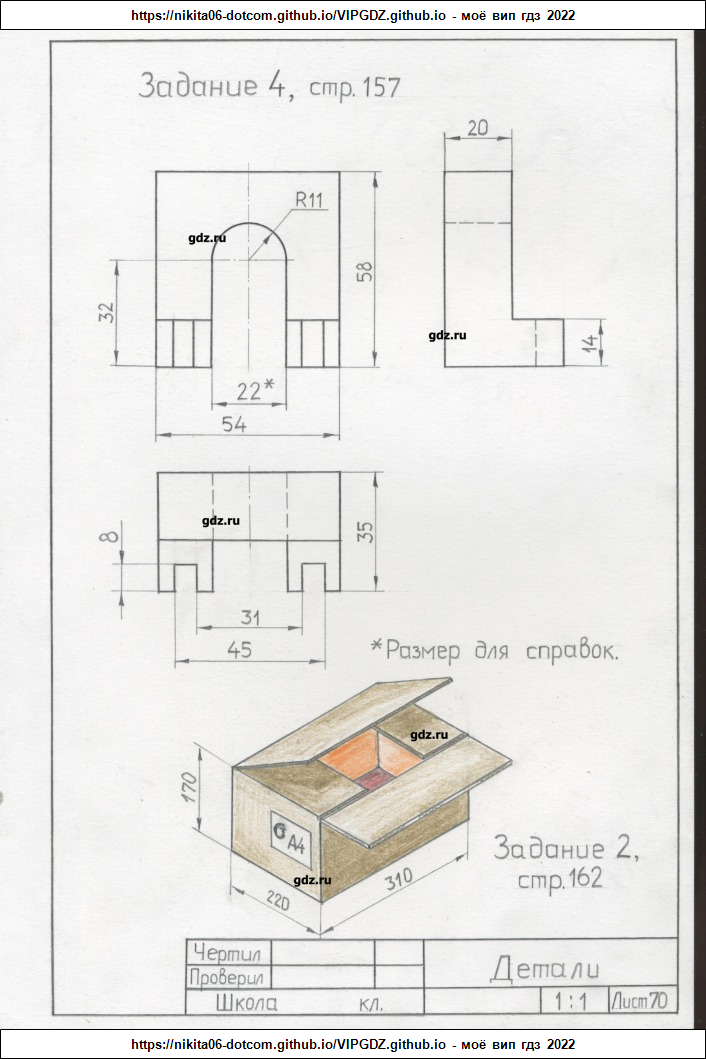 https://nikita06-dotcom.github.io/VIPGDZ.github.io - моё вип гдз 2022
Задание 4, стр.157
20
R11
gdz.ru
58
32
gdz.ru
14
22*
54
gdz.ru
8
35
31
45
*Размер для справок.
gdz.ru
170
А4
gdz.ru
220
310
Задание 2,
стр.162
Чертил
Проверил
Детали
Школа кл.
1:1
Лист70
https://nikita06-dotcom.github.io/VIPGDZ.github.io - моё вип гдз 2022